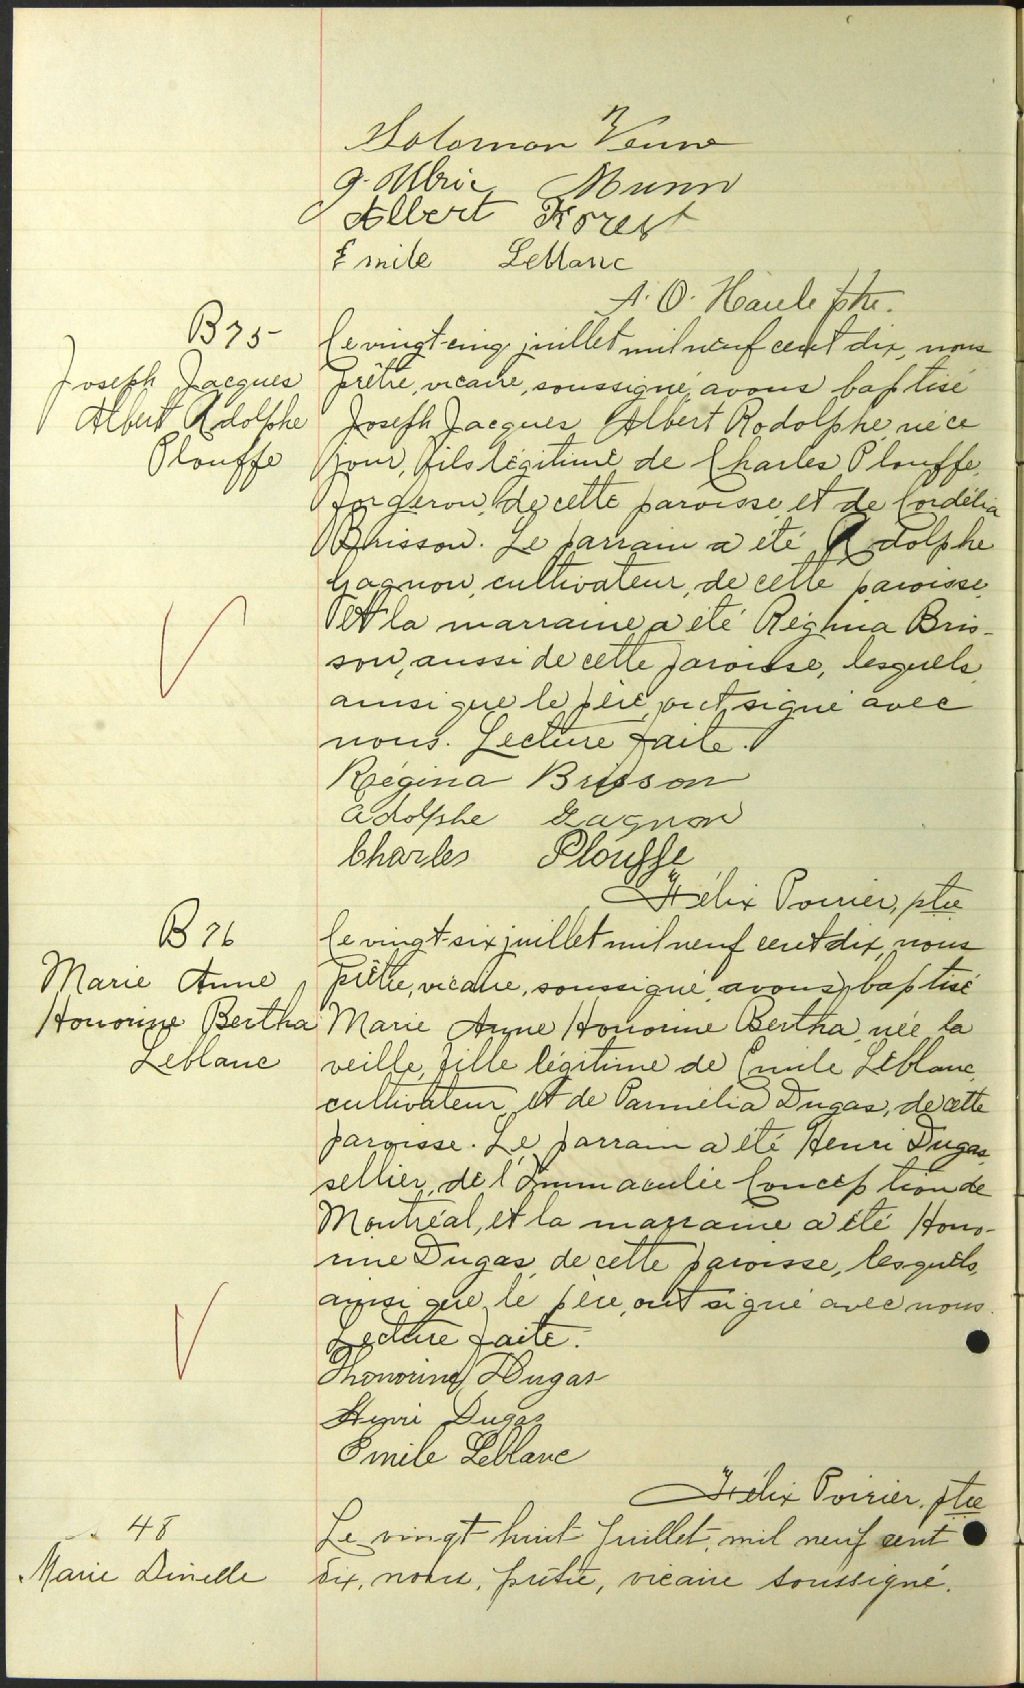 Solomon Venne
J. Ulric Munn
Albert Forest
Emile Leblanc
A. O. Houle ptre.
B 75
Joseph Jacques
Albert Adolphe
Plouffe
Le vingt-cinq juillet mil neuf cent dix, nous
prêtre, vicaire, soussigné, avons baptisé
Joseph Jacques Albert Rodolphe, né ce
jour, fils légitime de Charles Plouffe,
forgeron, de cette paroisse et de Cordélia
Brisson. Le parrain a été Adolphe
Gagnon, cultivateur, de cette paroisse,
et la marraine a été Régina Bris-
son, aussi de cette paroisse, lesquels,
ainsi que le père, ont signé avec
nous. Lecture faite.
Régina Brisson
Adolphe Gagnon
Charles Plouffe
Félix Poirier, ptre
B 76
Marie Anne
Honorine Bertha
Leblanc
Le vingt-six juillet mil neuf cent dix, nous
prêtre, vicaire, soussigné, avons baptisé
Marie Anne Honorine Bertha, née la
veille, fille légitime de Emile Leblanc,
cultivateur, et de Parmélia Dugas, de cette
paroisse. Le parrain a été Henri Dugas,
sellier, de l'Immaculée Conception de
Montréal, et la marraine a été Hono-
rine Dugas, de cette paroisse, lesquels,
ainsi que le père, ont signé avec nous.
Lecture faite.
Honorine Dugas
Henri Dugas
Emile Leblanc
Félix Poirier, ptre
48
Marie Dinelle
Le vingt huit Juillet, mil neuf cent
dix, nous, prêtre, vicaire soussigné.